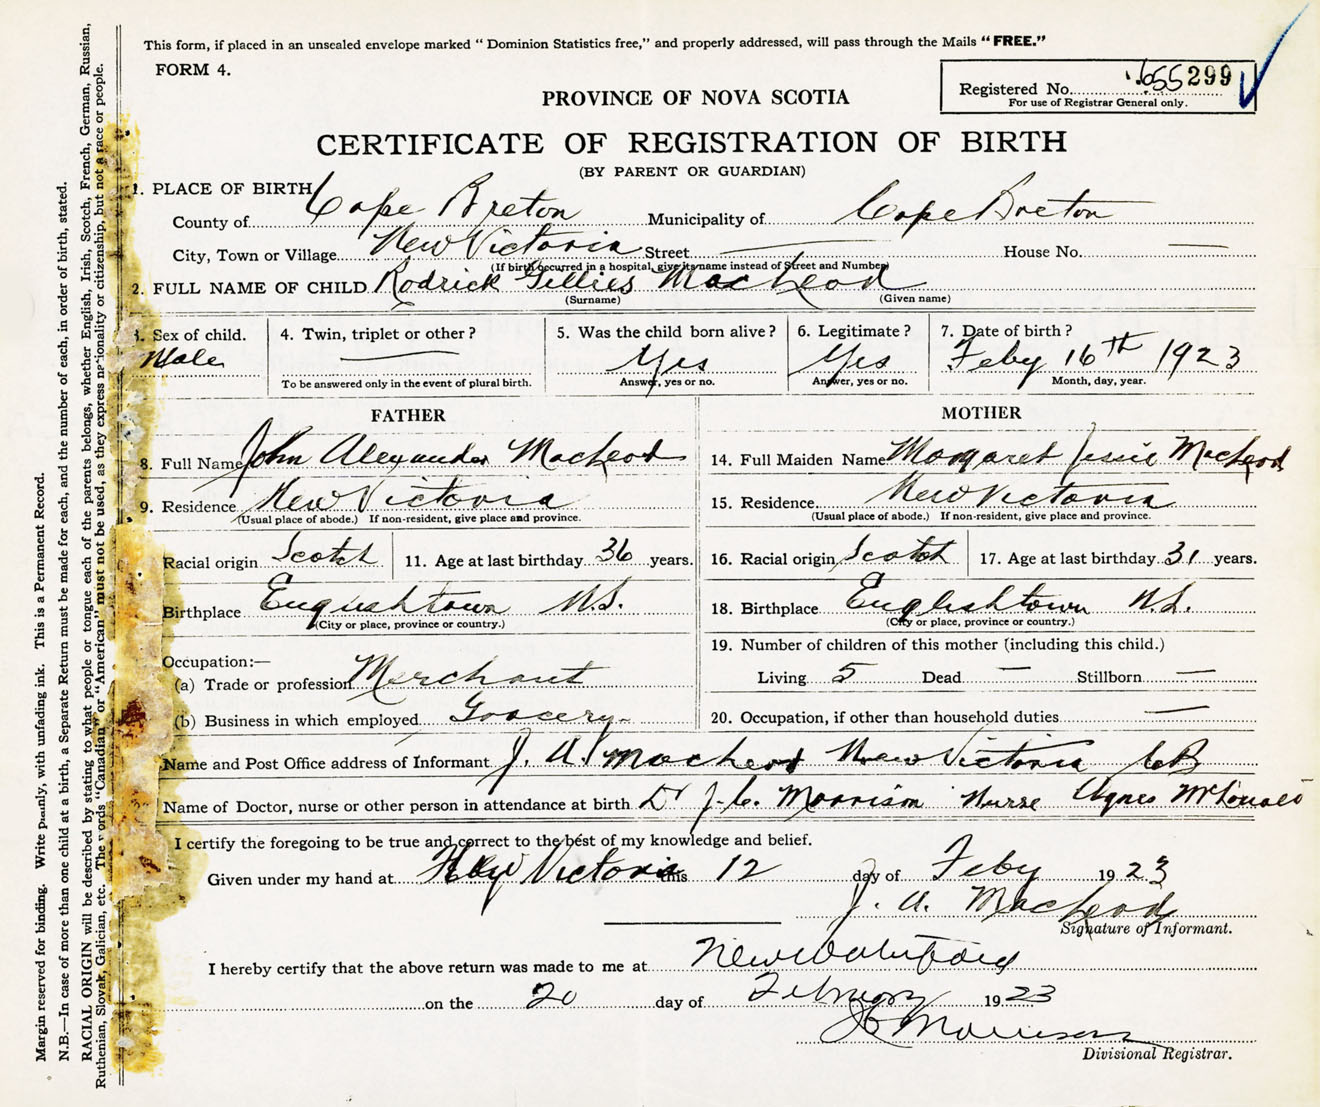 This form, if placed in an unsealed envelope marked “ Dominion Statistics free,” and properly addressed, will pass through the Mails “FREE.”
FORM 4.
Registered No. 655299
For use of Registrar General only.
PROVINCE OF NOVA SCOTIA
CERTIFICATE OF REGISTRATION OF BIRTH
(BY PARENT OR GUARDIAN)
1. PLACE OF BIRTH
County of Cape Breton Municipality of Cape Breton
City, Town or Village New Victoria Street — House No. —
(If birth occurred in a hospital, give its name instead of Street and Number)
2. FULL NAME OF CHILD Rodrick Gillies MacLeod
(Surname) (Given name)
3. Sex of child. 4. Twin, triplet or other ? 5. Was the child born alive ? 6. Legitimate ? 7. Date of birth ?
Male — Yes Yes Feby 16th 1923
To be answered only in the event of plural birth. Answer, yes or no. Answer, yes or no. Month, day, year.
FATHER MOTHER
8. Full Name John Alexander MacLeod 14. Full Maiden Name Margaret Jessie MacLeod
9. Residence New Victoria 15. Residence New Victoria
(Usual place of abode.) If non-resident, give place and province. (Usual place of abode.) If non-resident, give place and province.
Racial origin Scotch 11. Age at last birthday 36 years. 16. Racial origin Scotch 17. Age at last birthday 31 years.
Birthplace Englishtown N.S. 18. Birthplace Englishtown N.S.
(City or place, province or country.) (City or place, province or country.)
19. Number of children of this mother (including this child.)
Occupation:—
Living 5 Dead — Stillborn —
(a) Trade or profession Merchant
(b) Business in which employed Grocery 20. Occupation, if other than household duties —
Name and Post Office address of Informant J. A. MacLeod New Victoria CB
Name of Doctor, nurse or other person in attendance at birth Dr J. C. Morrison Nurse Agnes McDonald
I certify the foregoing to be true and correct to the best of my knowledge and belief.
Given under my hand at New Victoria this 12 day of Feby 1923
J. A. MacLeod
Signature of Informant.
I hereby certify that the above return was made to me at New Waterford
on the 20 day of February 1923
JC Morrison
Divisional Registrar.
Margin reserved for binding. Write plainly, with unfading ink. This is a Permanent Record.
N.B.—In case of more than one child at a birth, a Separate Return must be made for each, and the number of each, in order of birth, stated.
RACIAL ORIGIN will be described by stating to what people or tongue each of the parents belongs, whether English, Irish, Scotch, French, German, Russian,
Ruthenian, Slovak, Galician, etc. The words “Canadian” or “American” must not be used, as they express nationality or citizenship, but not a race or people.